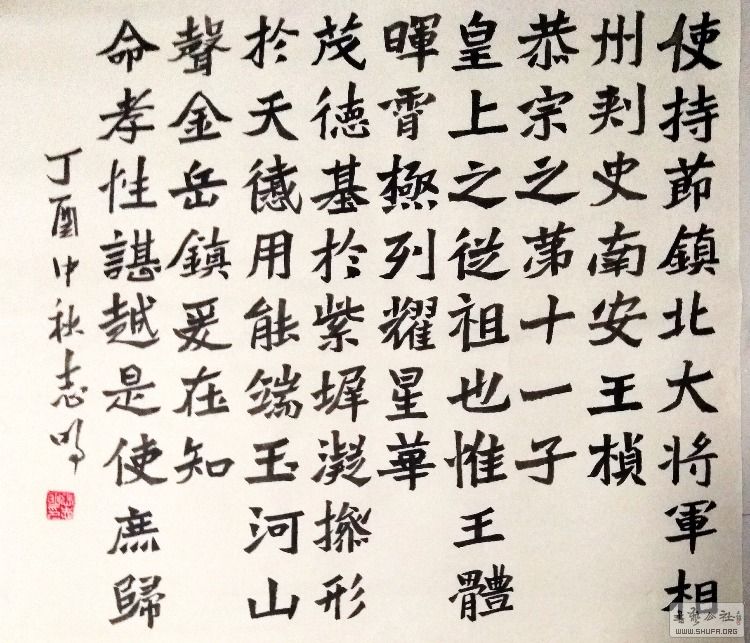 使持節鎮北大将軍相
州刺史南安王楨
恭宗之第十一子
皇上之従祖也惟王體
暉霄極列耀星華
茂德基於紫墀凝操形
於天儀用能端玉河山
聲金岳鎮爰在知
命孝性諶越是使庶歸
丁酉中秋志鸣
书艺公社
WWW.SHUFA.ORG